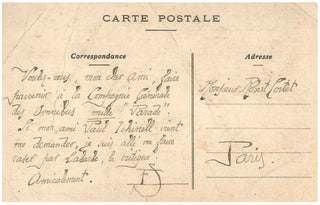 CARTE POSTALE
Correspondance
Adresse
Voulez-vous, mon cher Ami, faire
parvenir à la Compagnie Générale
des Omnibus mille "Paradi".
Si mon ami Paul vient
me demander, je suis allé me faire
raser par la critique.
Amicalement.
Monsieur Robert
Paris.